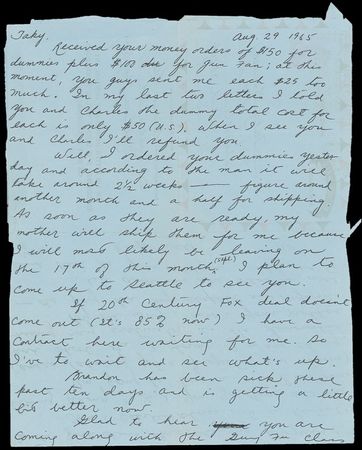 Taky, Aug 29 1965
Received your money orders of $150 for
dummies plus $103 due for Jun Fan; at this
moment, you guys sent me each $25 too
much. In my last two letters I told
you and Charles the dummy total cost for
each is only $50 (U.S.). When I see you
and Charles I'll refund you.
Well, I ordered your dummies yester
day and according to the man it will
take around 2½ weeks — figure around
another month and a half for shipping.
As soon as they are ready, my
mother will ship them for me because
I will most likely be leaving on
the 17th of this month (Sept). I plan to
come up to Seattle to see you.
If 20th Century Fox deal doesn't
come out (it's 85% now) I have a
contract here waiting for me. So
I've to wait and see what's up.
Brandon has been sick these
past ten days and is getting a little
bit better now.
Glad to hear you are
coming along with the Gung Fu class